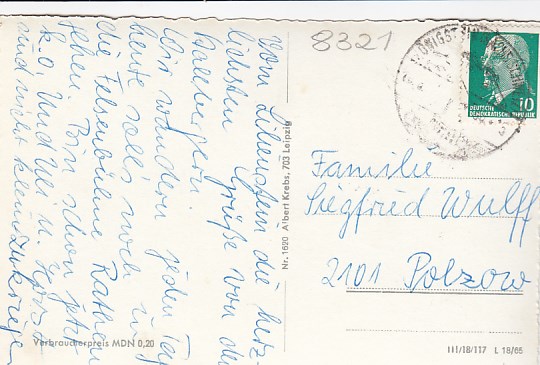 Vom Lilienstein die herz-
lichsten Grüße von den
Wir wandern jeden Tag
heute solls noch in
die Felsenbühne Rathen
gehen. Bin schon ganz
k.o. Und Uli u.
sind nicht kleinzukriegen
Verbraucherpreis MDN 0,20
Nr. 1620 Albert Krebs, 703 Leipzig
8321
10
DEUTSCHE
DEMOKRATISCHE REPUBLIK
Familie
Siegfried Wulff
2101 Polzow
III/18/117 L 18/65